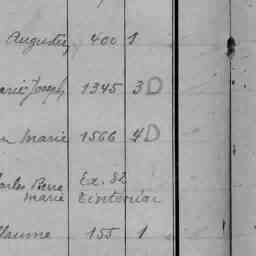 Augustin 400 1
Marie Joseph 1345 3 D
Marie 1566 4 D
Charles René Ex. 32
Marie Tinténiac
Guillaume 155 1